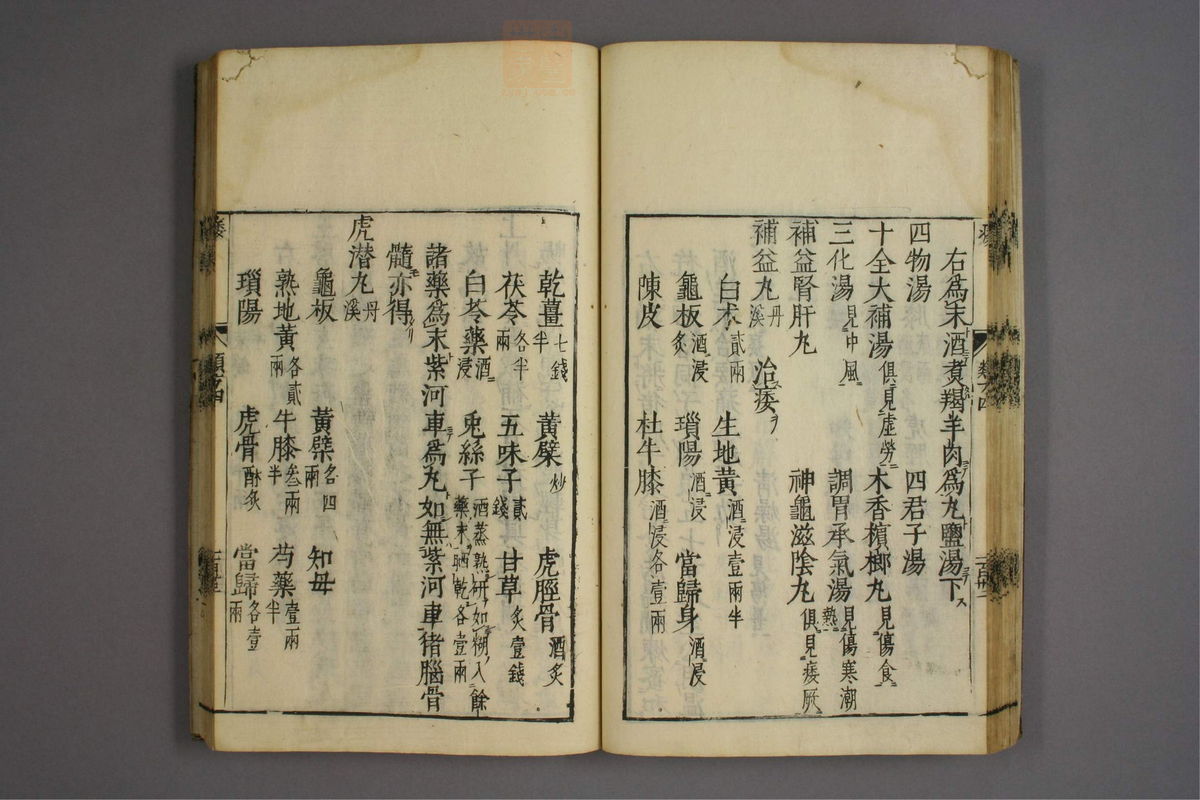 右爲末酒煮羯羊肉爲丸鹽湯下
四物湯 四君子湯
十全大補湯俱見虛勞 木香檳榔丸見傷食
三化湯見中風 調胃承氣湯見傷寒潮熱
補益腎肝丸 神龜滋陰丸俱見痿厥
補益丸丹溪 治痿
白朮貳兩 生地黃酒浸壹兩半
龜板酒浸炙 瑣陽酒浸 當歸身酒浸
陳皮 杜牛膝酒浸各壹兩
乾薑七錢半 黃檗炒 虎脛骨酒炙
茯苓各半兩 五味子貳錢 甘草炙壹錢
白芍藥酒浸 兎絲子酒蒸熟研如糊入餘藥末晒乾各壹兩
諸藥爲末紫河車爲丸如無紫河車猪腦骨
髓亦得
虎潛丸丹溪
龜板 黃檗各四兩 知母
熟地黃各貳兩 牛膝叁兩半 芍藥壹兩半
瑣陽 虎骨酥炙 當歸各壹兩